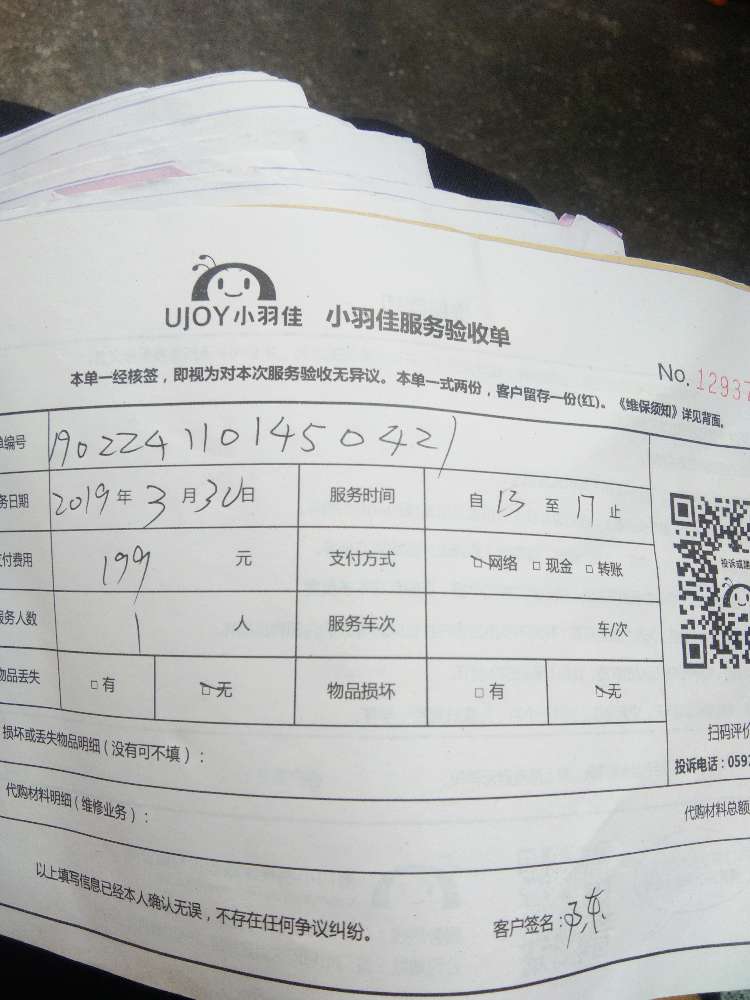 UJOY小羽佳 小羽佳服务验收单
No. 12937
本单一经核签，即视为对本次服务验收无异议。本单一式两份，客户留存一份(红)。《维保须知》详见背面。
单编号 190224110145042)
务日期 2019年3月30日 服务时间 自13至17止
支付费用 199 元 支付方式 □网络 □现金 □转账
服务人数 1 人 服务车次 车/次
物品丢失 □有 □无 物品损坏 □有 □无
投诉或建
扫码评价
投诉电话：059
损坏或丢失物品明细（没有可不填）：
代购材料明细（维修业务）：
代购材料总额
以上填写信息已经本人确认无误，不存在任何争议纠纷。
客户签名：